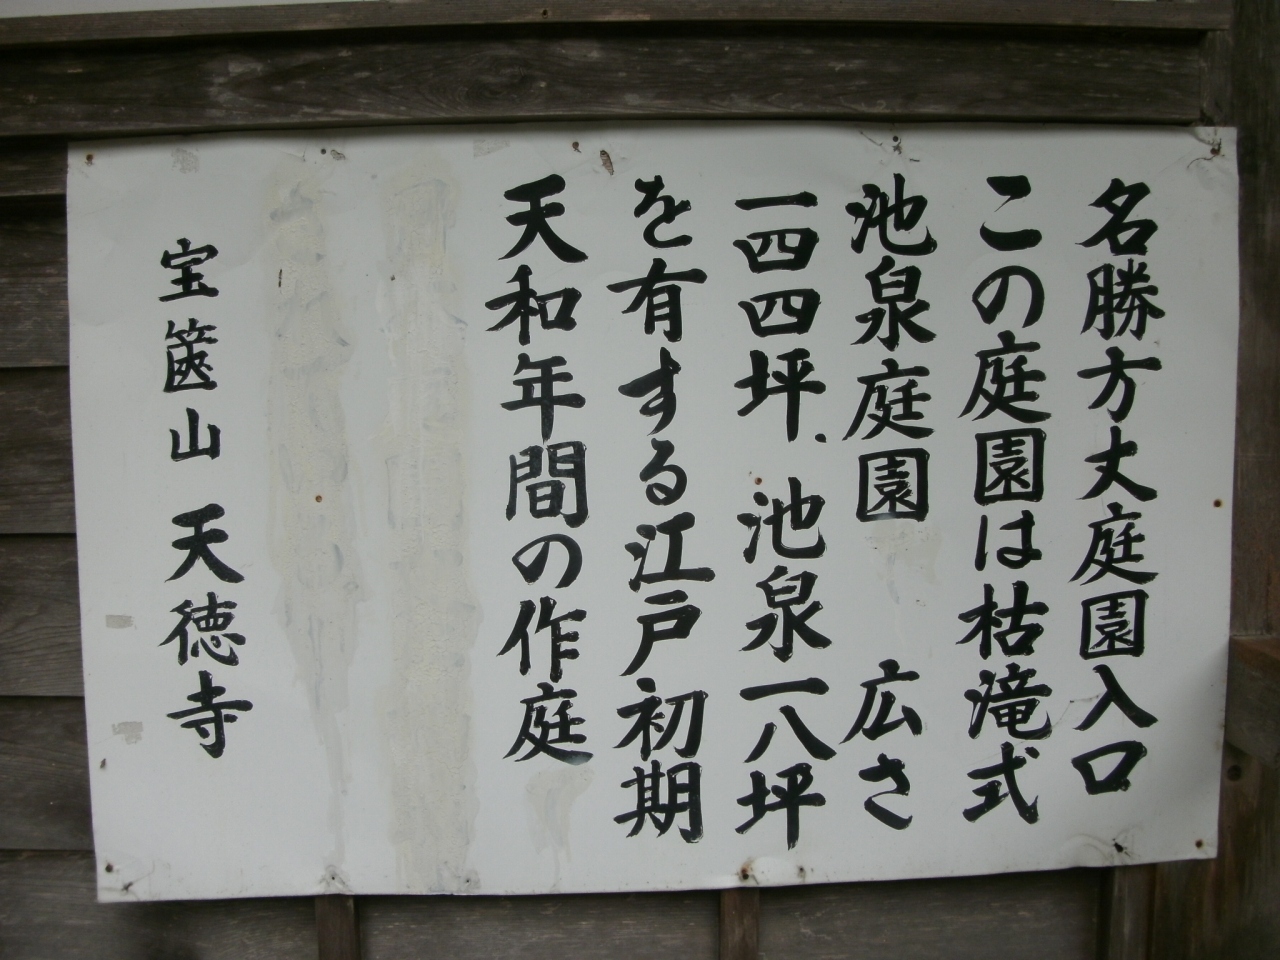 名勝方丈庭園入口
この庭園は枯滝式
池泉庭園 広さ
一四四坪、池泉一八坪
を有する江戸初期
天和年間の作庭
宝篋山 天徳寺